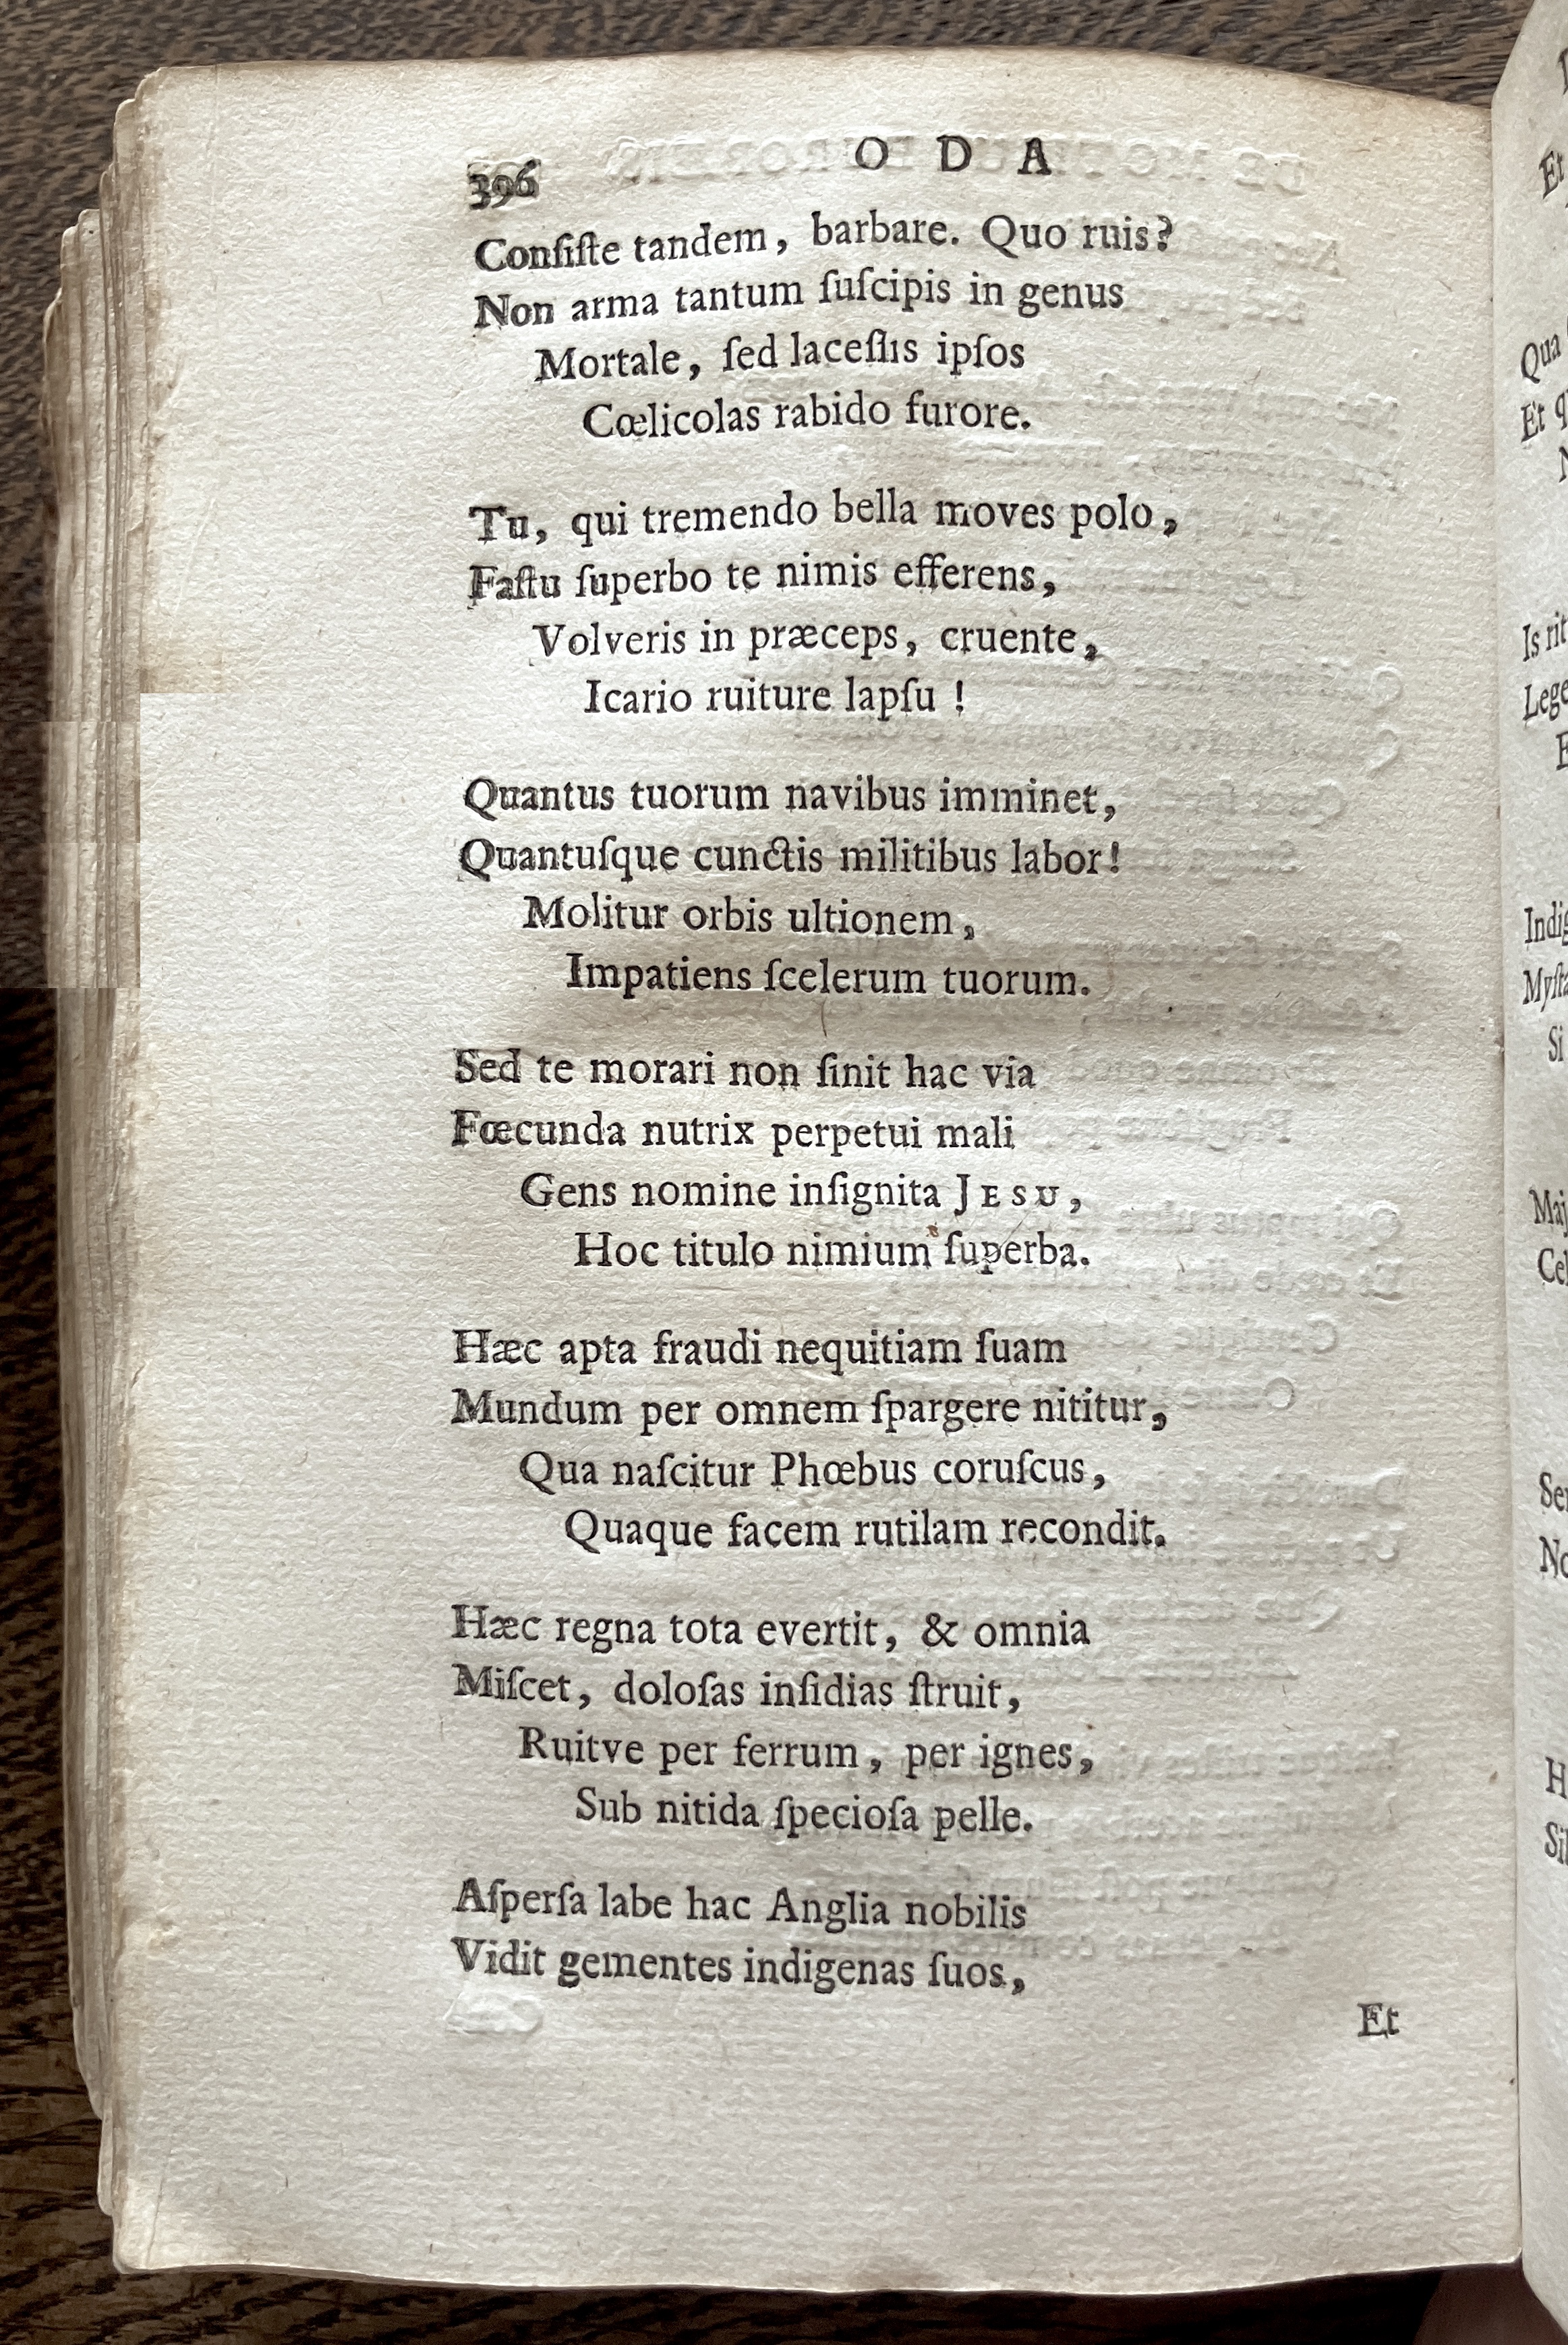 396
O D A
Conſiſte tandem, barbare. Quo ruis?
Non arma tantum ſuſcipis in genus
Mortale, ſed laceſſis ipſos
Cœlicolas rabido furore.
Tu, qui tremendo bella moves polo,
Faſtu ſuperbo te nimis efferens,
Volveris in præceps, cruente,
Icario ruiture lapſu !
Quantus tuorum navibus imminet,
Quantuſque cunctis militibus labor!
Molitur orbis ultionem,
Impatiens ſcelerum tuorum.
Sed te morari non ſinit hac via
Fœcunda nutrix perpetui mali
Gens nomine inſignita JESU,
Hoc titulo nimium ſuperba.
Hæc apta fraudi nequitiam ſuam
Mundum per omnem ſpargere nititur,
Qua naſcitur Phœbus coruſcus,
Quaque facem rutilam recondit.
Hæc regna tota evertit, & omnia
Miſcet, doloſas inſidias ſtruit,
Ruitve per ferrum, per ignes,
Sub nitida ſpecioſa pelle.
Aſperſa labe hac Anglia nobilis
Vidit gementes indigenas ſuos,
Et
Et
Qua
Et
Is
Si